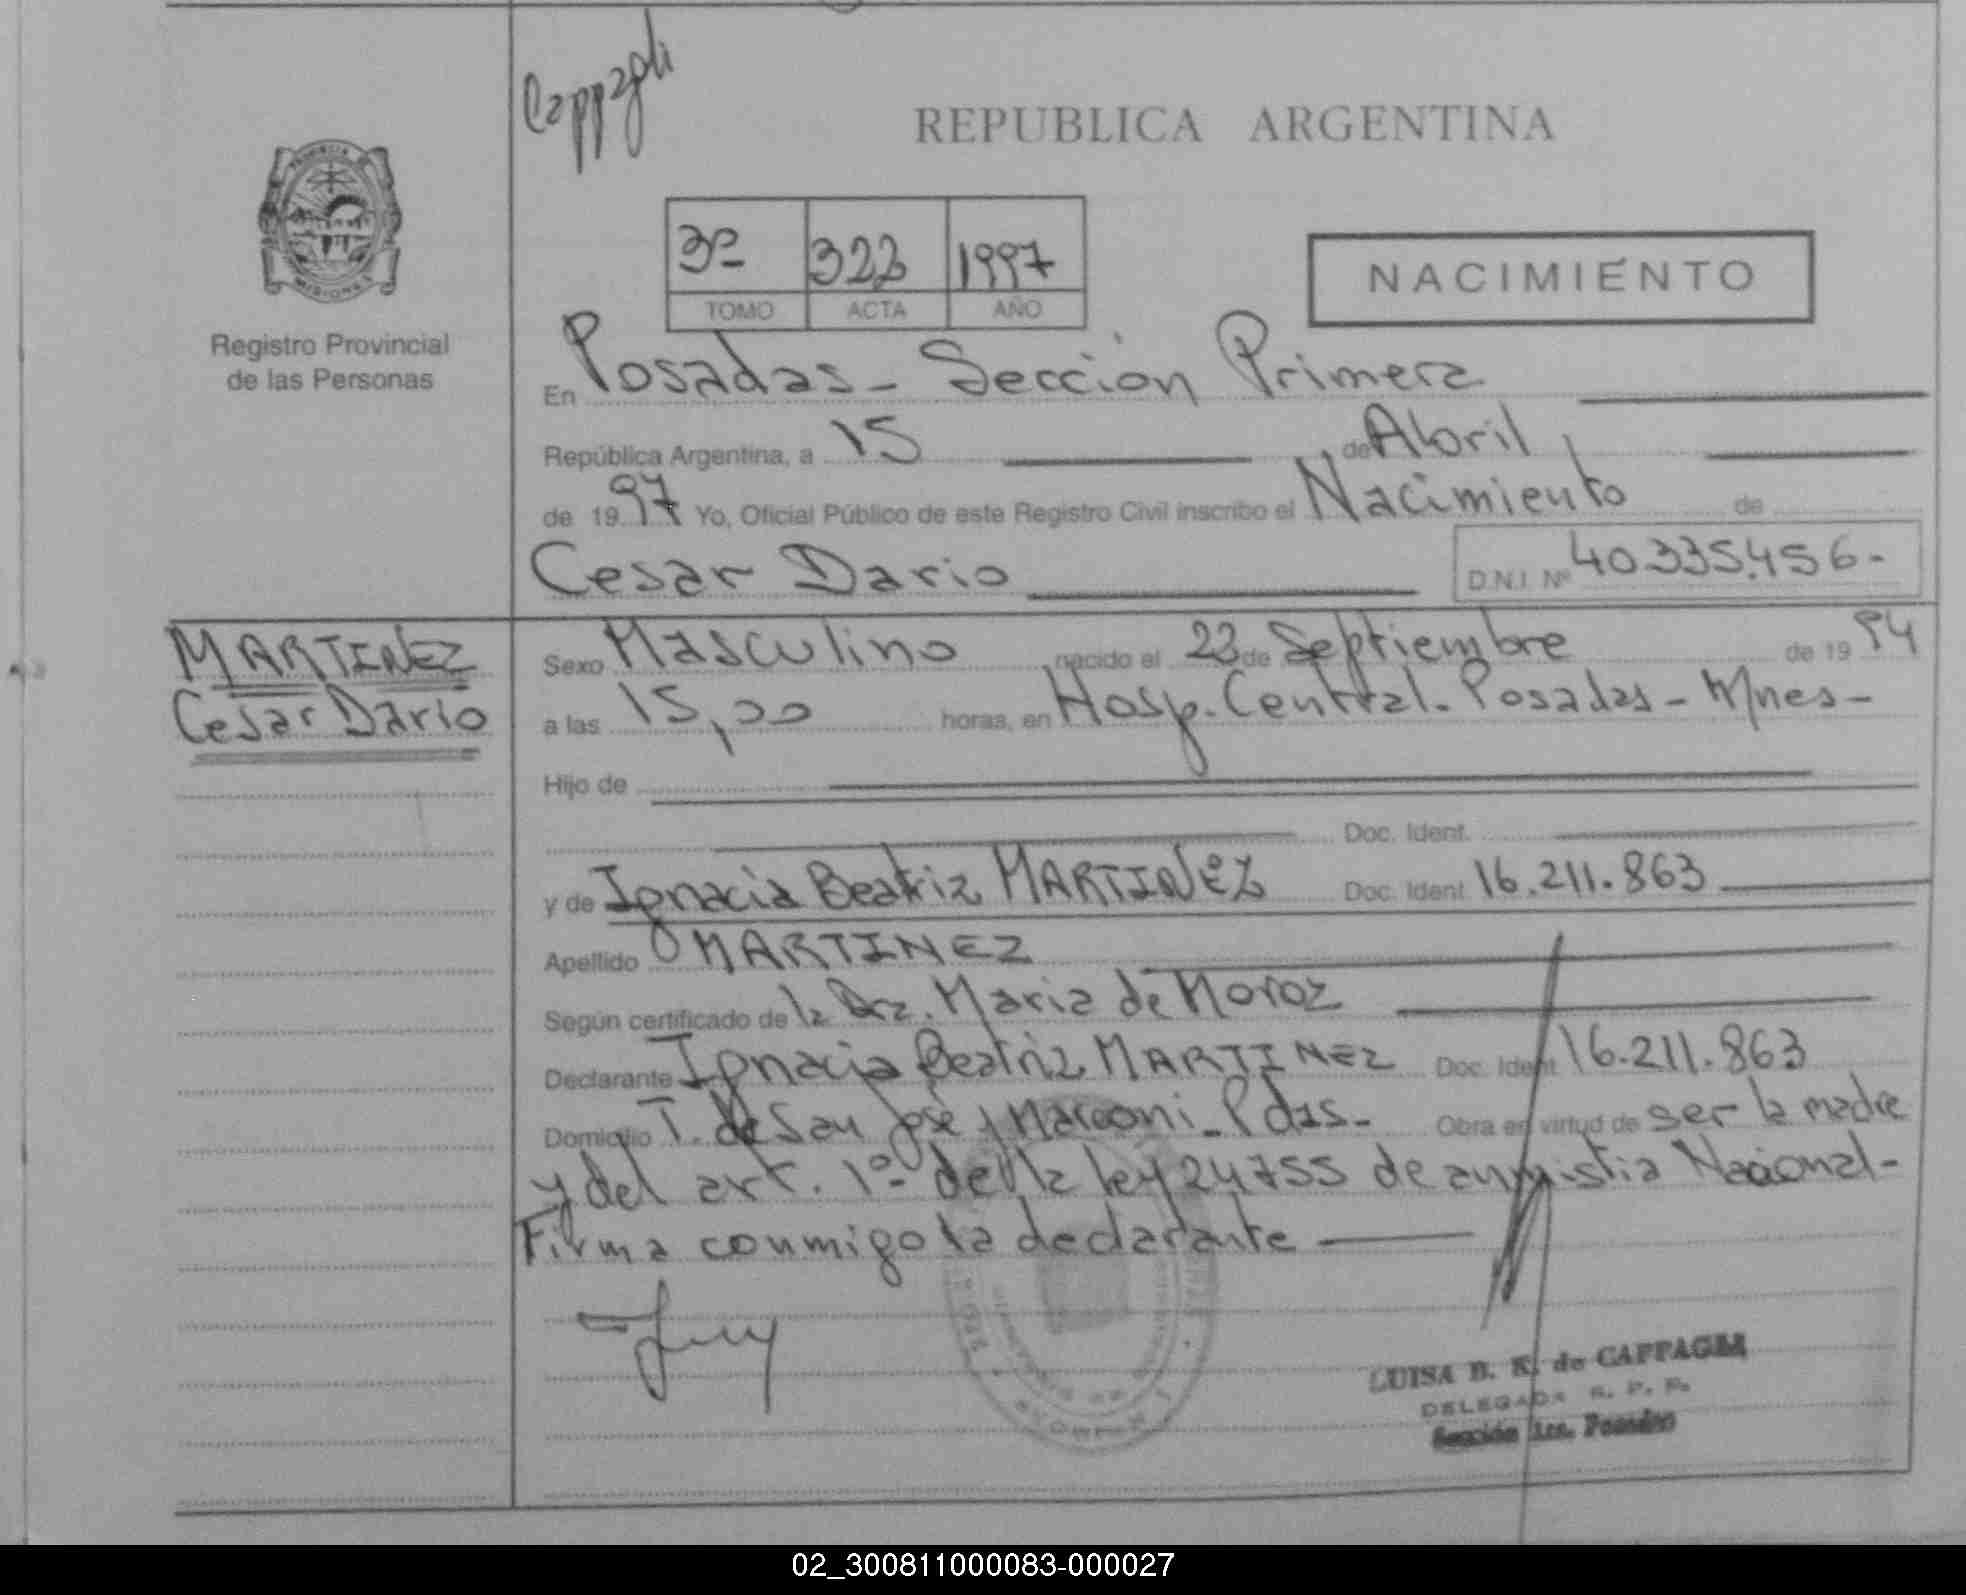 Cappagli
REPUBLICA ARGENTINA
PROVINCIA DE
MISIONES
Registro Provincial
de las Personas
3º 322 1997
TOMO ACTA AÑO
NACIMIENTO
En Posadas - Sección Primera
República Argentina, a 15 de Abril
de 1997 Yo, Oficial Público de este Registro Civil inscribo el Nacimiento de
Cesar Dario D.N.I. Nº 40.335.456-
MARTINEZ
Cesar Dario
Sexo Masculino nacido el 22 de Septiembre de 1994
a las 15,00 horas, en Hosp. Central. Posadas - Mnes-
Hijo de
Doc. Ident.
y de Ignacia Beatriz MARTINEZ Doc. Ident 16.211.863
Apellido MARTINEZ
Según certificado de la Dra. Maria de Moroz
Declarante Ignacia Beatriz MARTINEZ Doc. Ident 16.211.863
Domicilio T. de San José y Marconi - Pdas- Obra en virtud de ser la madre
y del art. 1º de la ley 24755 de anmistia Nacional-
Firma conmigo la declarante
LUISA B. K. de CAPPAGLI
DELEGADA R. P. P.
Sección 1ra. Posadas
02_300811000083-000027